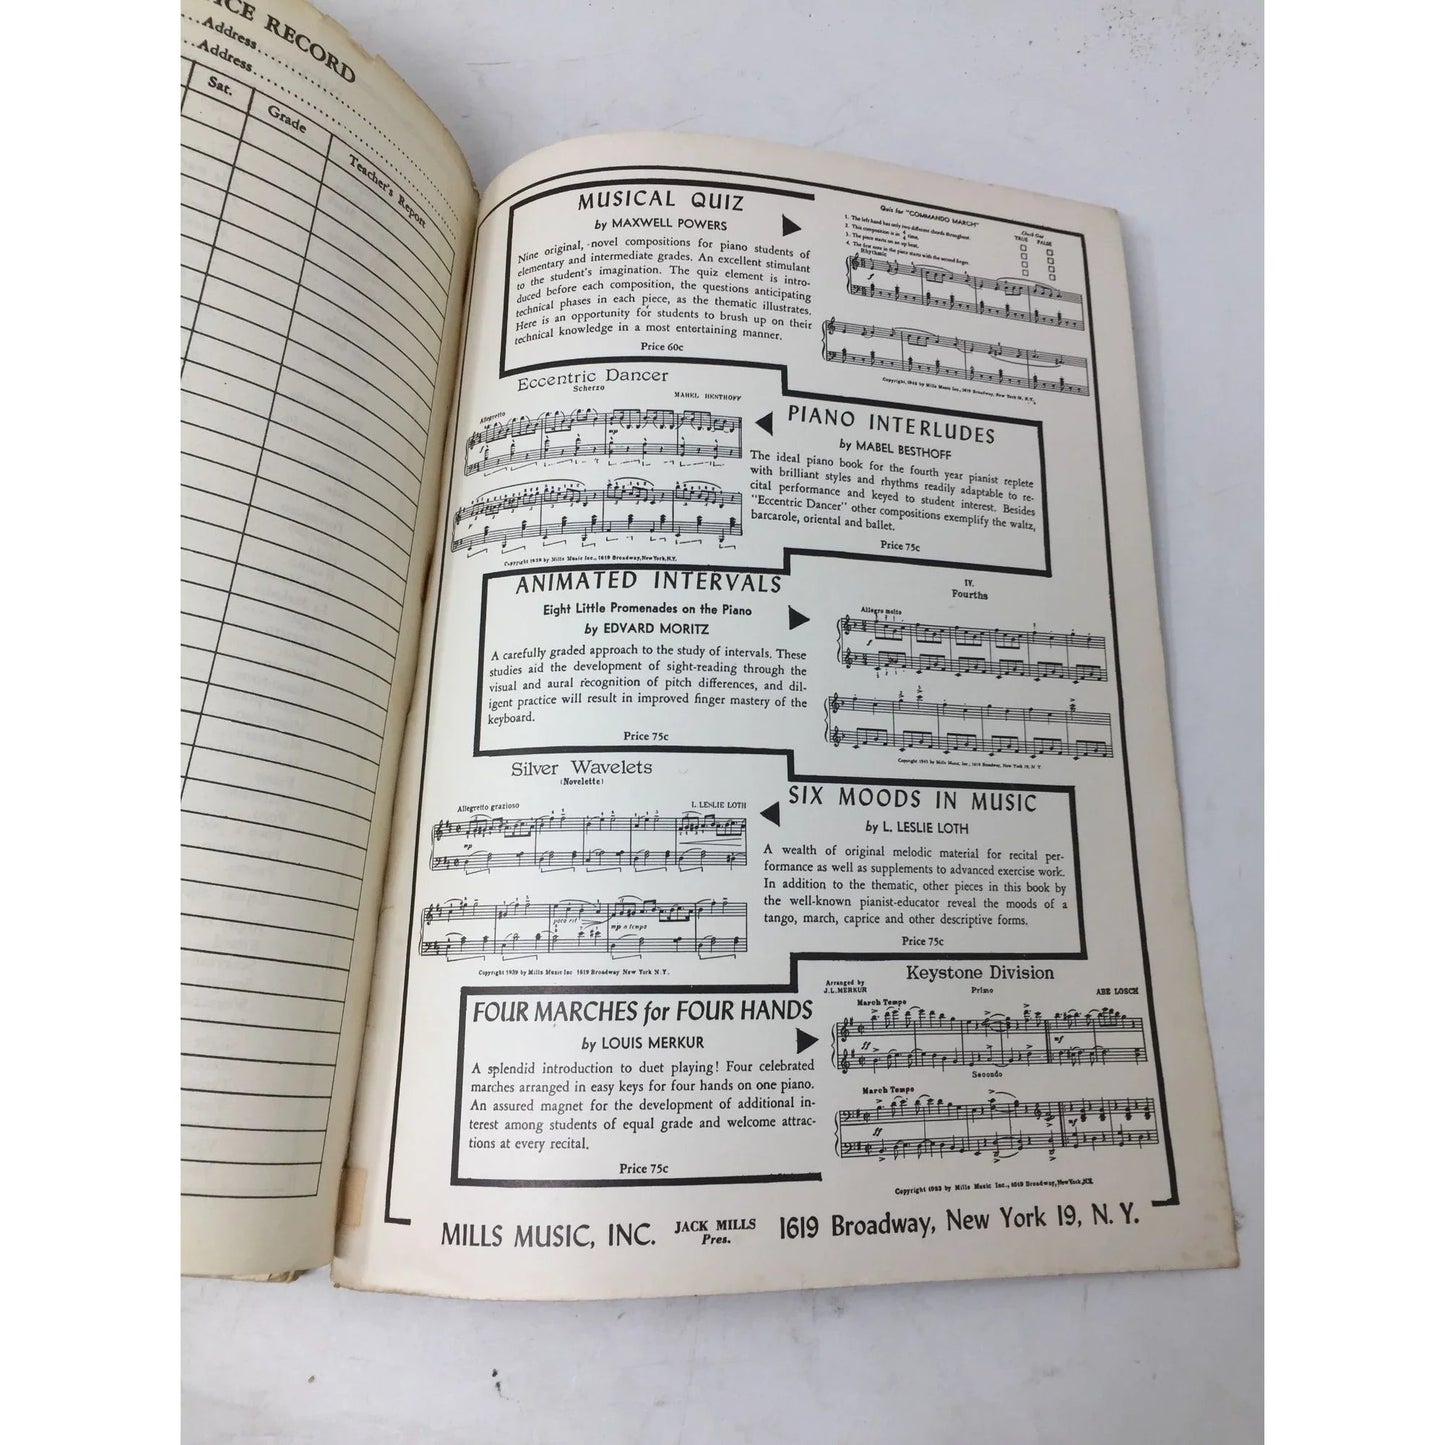 ICE RECORD
Address
Address
Sat.
Grade
Teacher's Report
MUSICAL QUIZ
by MAXWELL POWERS
Nine original, novel compositions for piano students of
elementary and intermediate grades. An excellent stimulant
to the student's imagination. The quiz element is intro-
duced before each composition, the questions anticipating
technical phases in each piece, as the thematic illustrates.
Here is an opportunity for students to brush up on their
technical knowledge in a most entertaining manner.
Price 60c
Quiz for "COMMANDO MARCH"
Check One
TRUE FALSE
1. The left hand has only two different chords throughout.
2. This composition is in 4/4 time.
3. The piece starts on an up beat.
4. The first note in the piece starts with the second finger.
Rhythmic
f
Eccentric Dancer
Scherzo
MABEL BESTHOFF
Allegretto
f
mp
Copyright 1939 by Mills Music Inc., 1619 Broadway, New York, N.Y.
PIANO INTERLUDES
by MABEL BESTHOFF
The ideal piano book for the fourth year pianist replete
with brilliant styles and rhythms readily adaptable to re-
cital performance and keyed to student interest. Besides
"Eccentric Dancer" other compositions exemplify the waltz,
barcarole, oriental and ballet.
Price 75c
ANIMATED INTERVALS
Eight Little Promenades on the Piano
by EDVARD MORITZ
A carefully graded approach to the study of intervals. These
studies aid the development of sight-reading through the
visual and aural recognition of pitch differences, and dil-
igent practice will result in improved finger mastery of the
keyboard.
Price 75c
IV.
Fourths
Allegro molto
f
Silver Wavelets
(Novelette)
L. LESLIE LOTH
Allegretto grazioso
mp
poco rit.
mp a tempo
Copyright 1939 by Mills Music Inc 1619 Broadway New York N.Y.
SIX MOODS IN MUSIC
by L. LESLIE LOTH
A wealth of original melodic material for recital per-
formance as well as supplements to advanced exercise work.
In addition to the thematic, other pieces in this book by
the well-known pianist-educator reveal the moods of a
tango, march, caprice and other descriptive forms.
Price 75c
FOUR MARCHES for FOUR HANDS
by LOUIS MERKUR
A splendid introduction to duet playing! Four celebrated
marches arranged in easy keys for four hands on one piano.
An assured magnet for the development of additional in-
terest among students of equal grade and welcome attrac-
tions at every recital.
Price 75c
Keystone Division
Arranged by
J.L.MERKUR
Primo
ABE LOSCH
March Tempo
ff
mf
Secondo
March Tempo
ff
mf
MILLS MUSIC, INC.
JACK MILLS
Pres.
1619 Broadway, New York 19, N. Y.